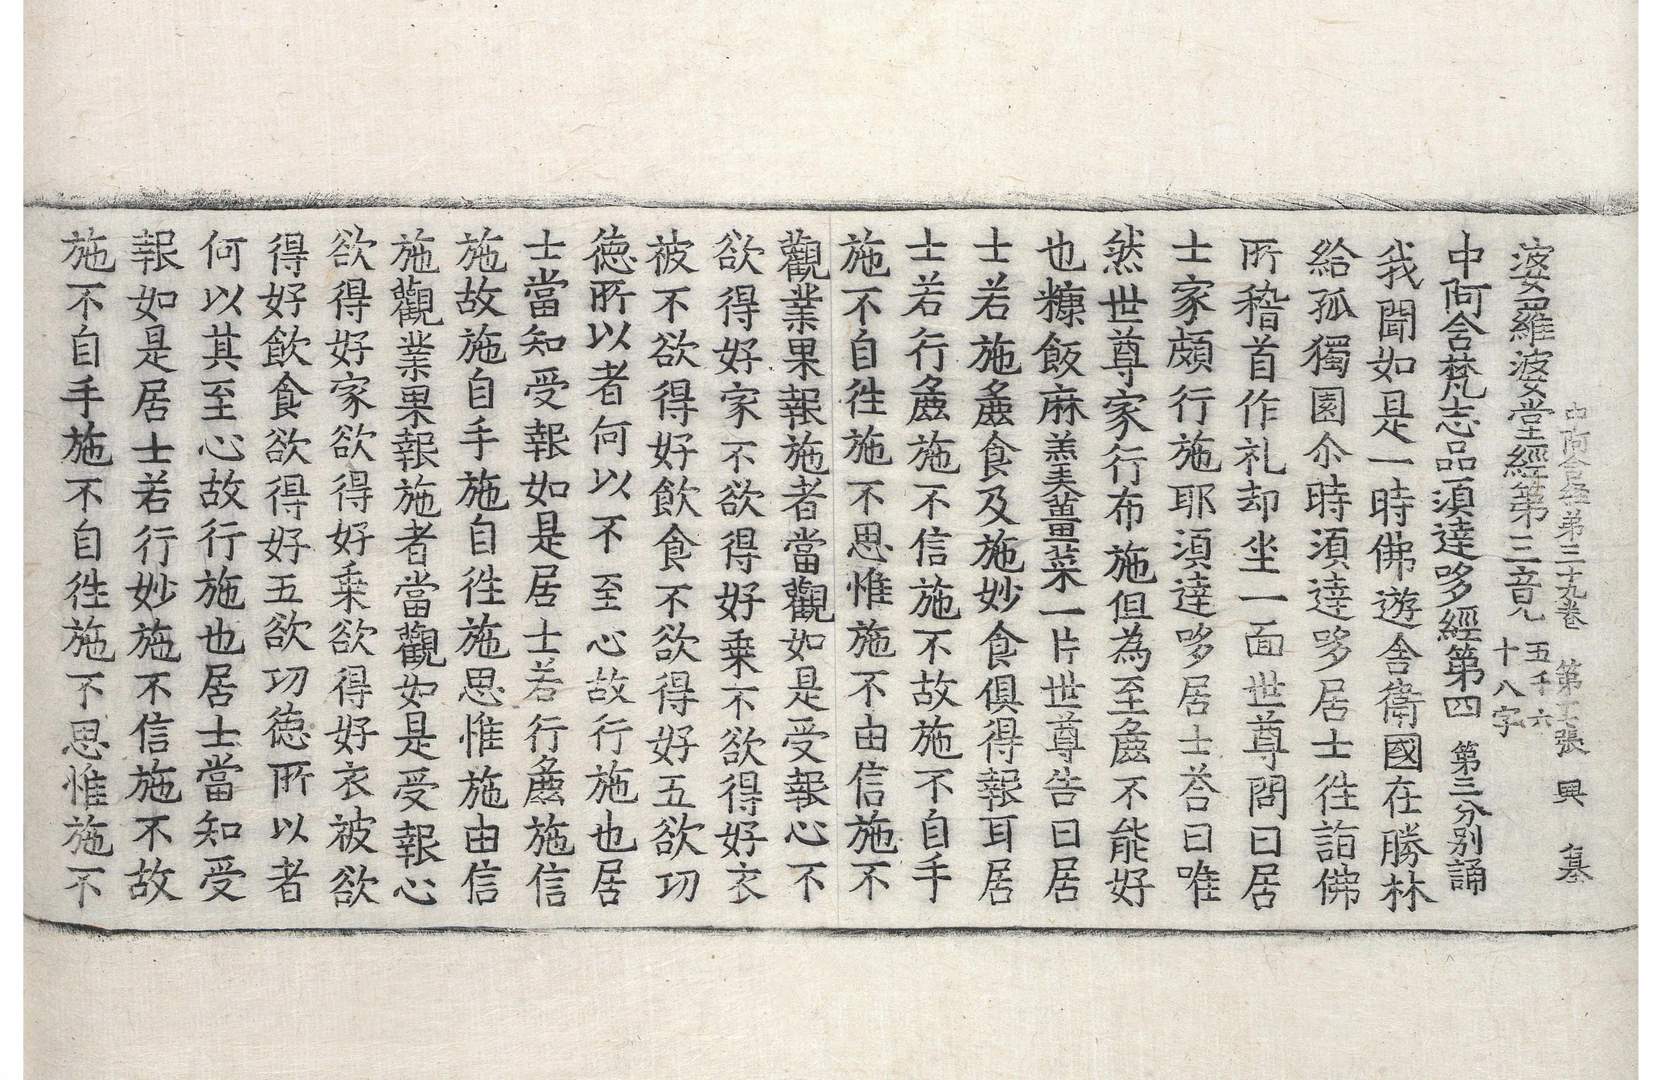 中阿含経第三十九卷 第十張 興 篡
婆羅婆堂經第三竟 五千六十八字
中阿含梵志品湏達哆經第四 第三分別誦
我聞如是一時佛遊舍衛國在勝林
給孤獨園尒時湏達哆居士往詣佛
所稽首作礼却坐一面世尊問曰居
士家頗行施耶湏達哆居士荅曰唯
然世尊家行布施但為至麁不能好
也糠飯麻羹薑菜一片世尊告曰居
士若施麁食及施妙食俱得報耳居
士若行麁施不信施不故施不自手
施不自往施不思惟施不由信施不
觀業果報施者當觀如是受報心不
欲得好家不欲得好乗不欲得好衣
被不欲得好飲食不欲得好五欲功
德所以者何以不至心故行施也居
士當知受報如是居士若行麁施信
施故施自手施自往施思惟施由信
施觀業果報施者當觀如是受報心
欲得好家欲得好乗欲得好衣被欲
得好飲食欲得好五欲功德所以者
何以其至心故行施也居士當知受
報如是居士若行妙施不信施不故
施不自手施不自往施不思惟施不